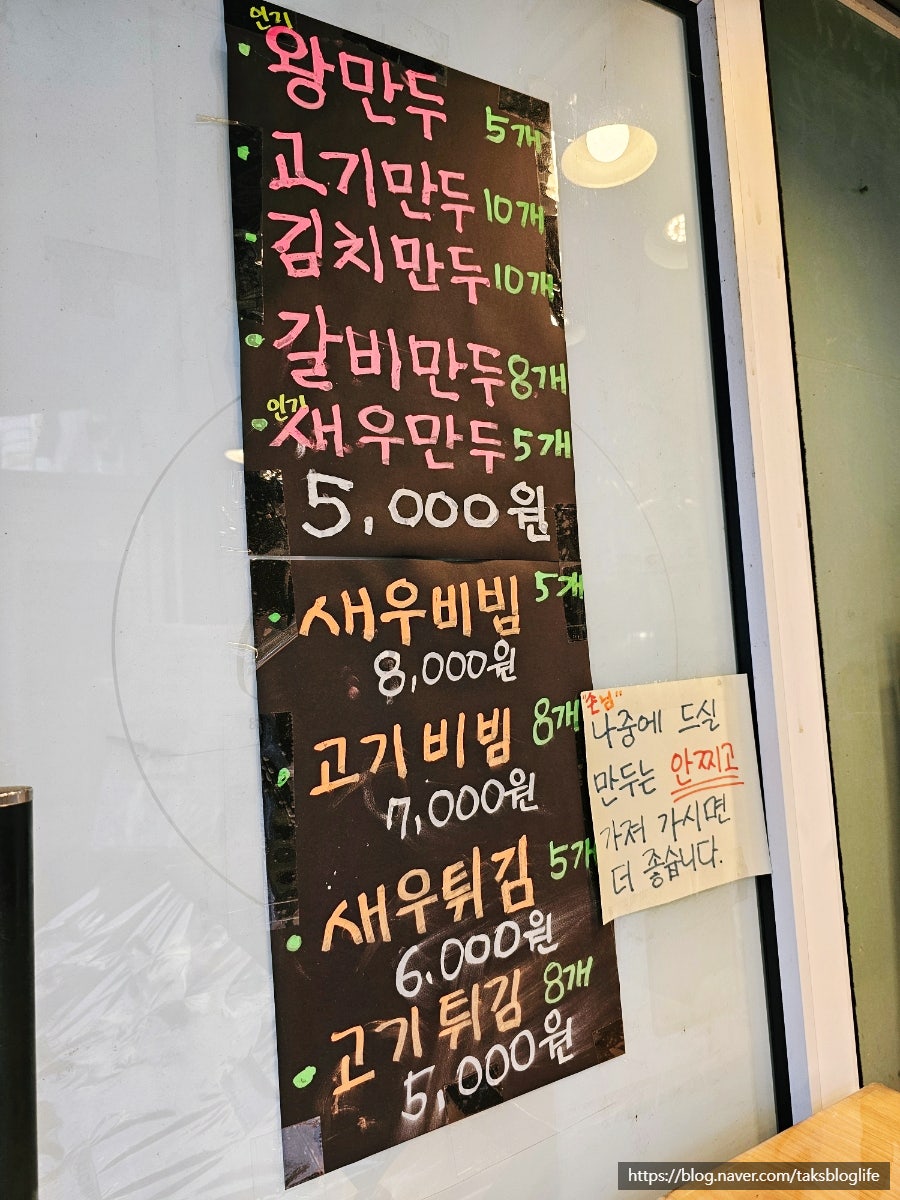 인기
왕만두 5개
고기만두 10개
김치만두 10개
갈비만두 8개
인기
새우만두 5개
5,000원
새우비빔 5개
8,000원
고기비빔 8개
7,000원
새우튀김 5개
6,000원
고기튀김 8개
5,000원
"손님"
나중에 드실
만두는 안찌고
가져 가시면
더 좋습니다.
https://blog.naver.com/taksbloglife